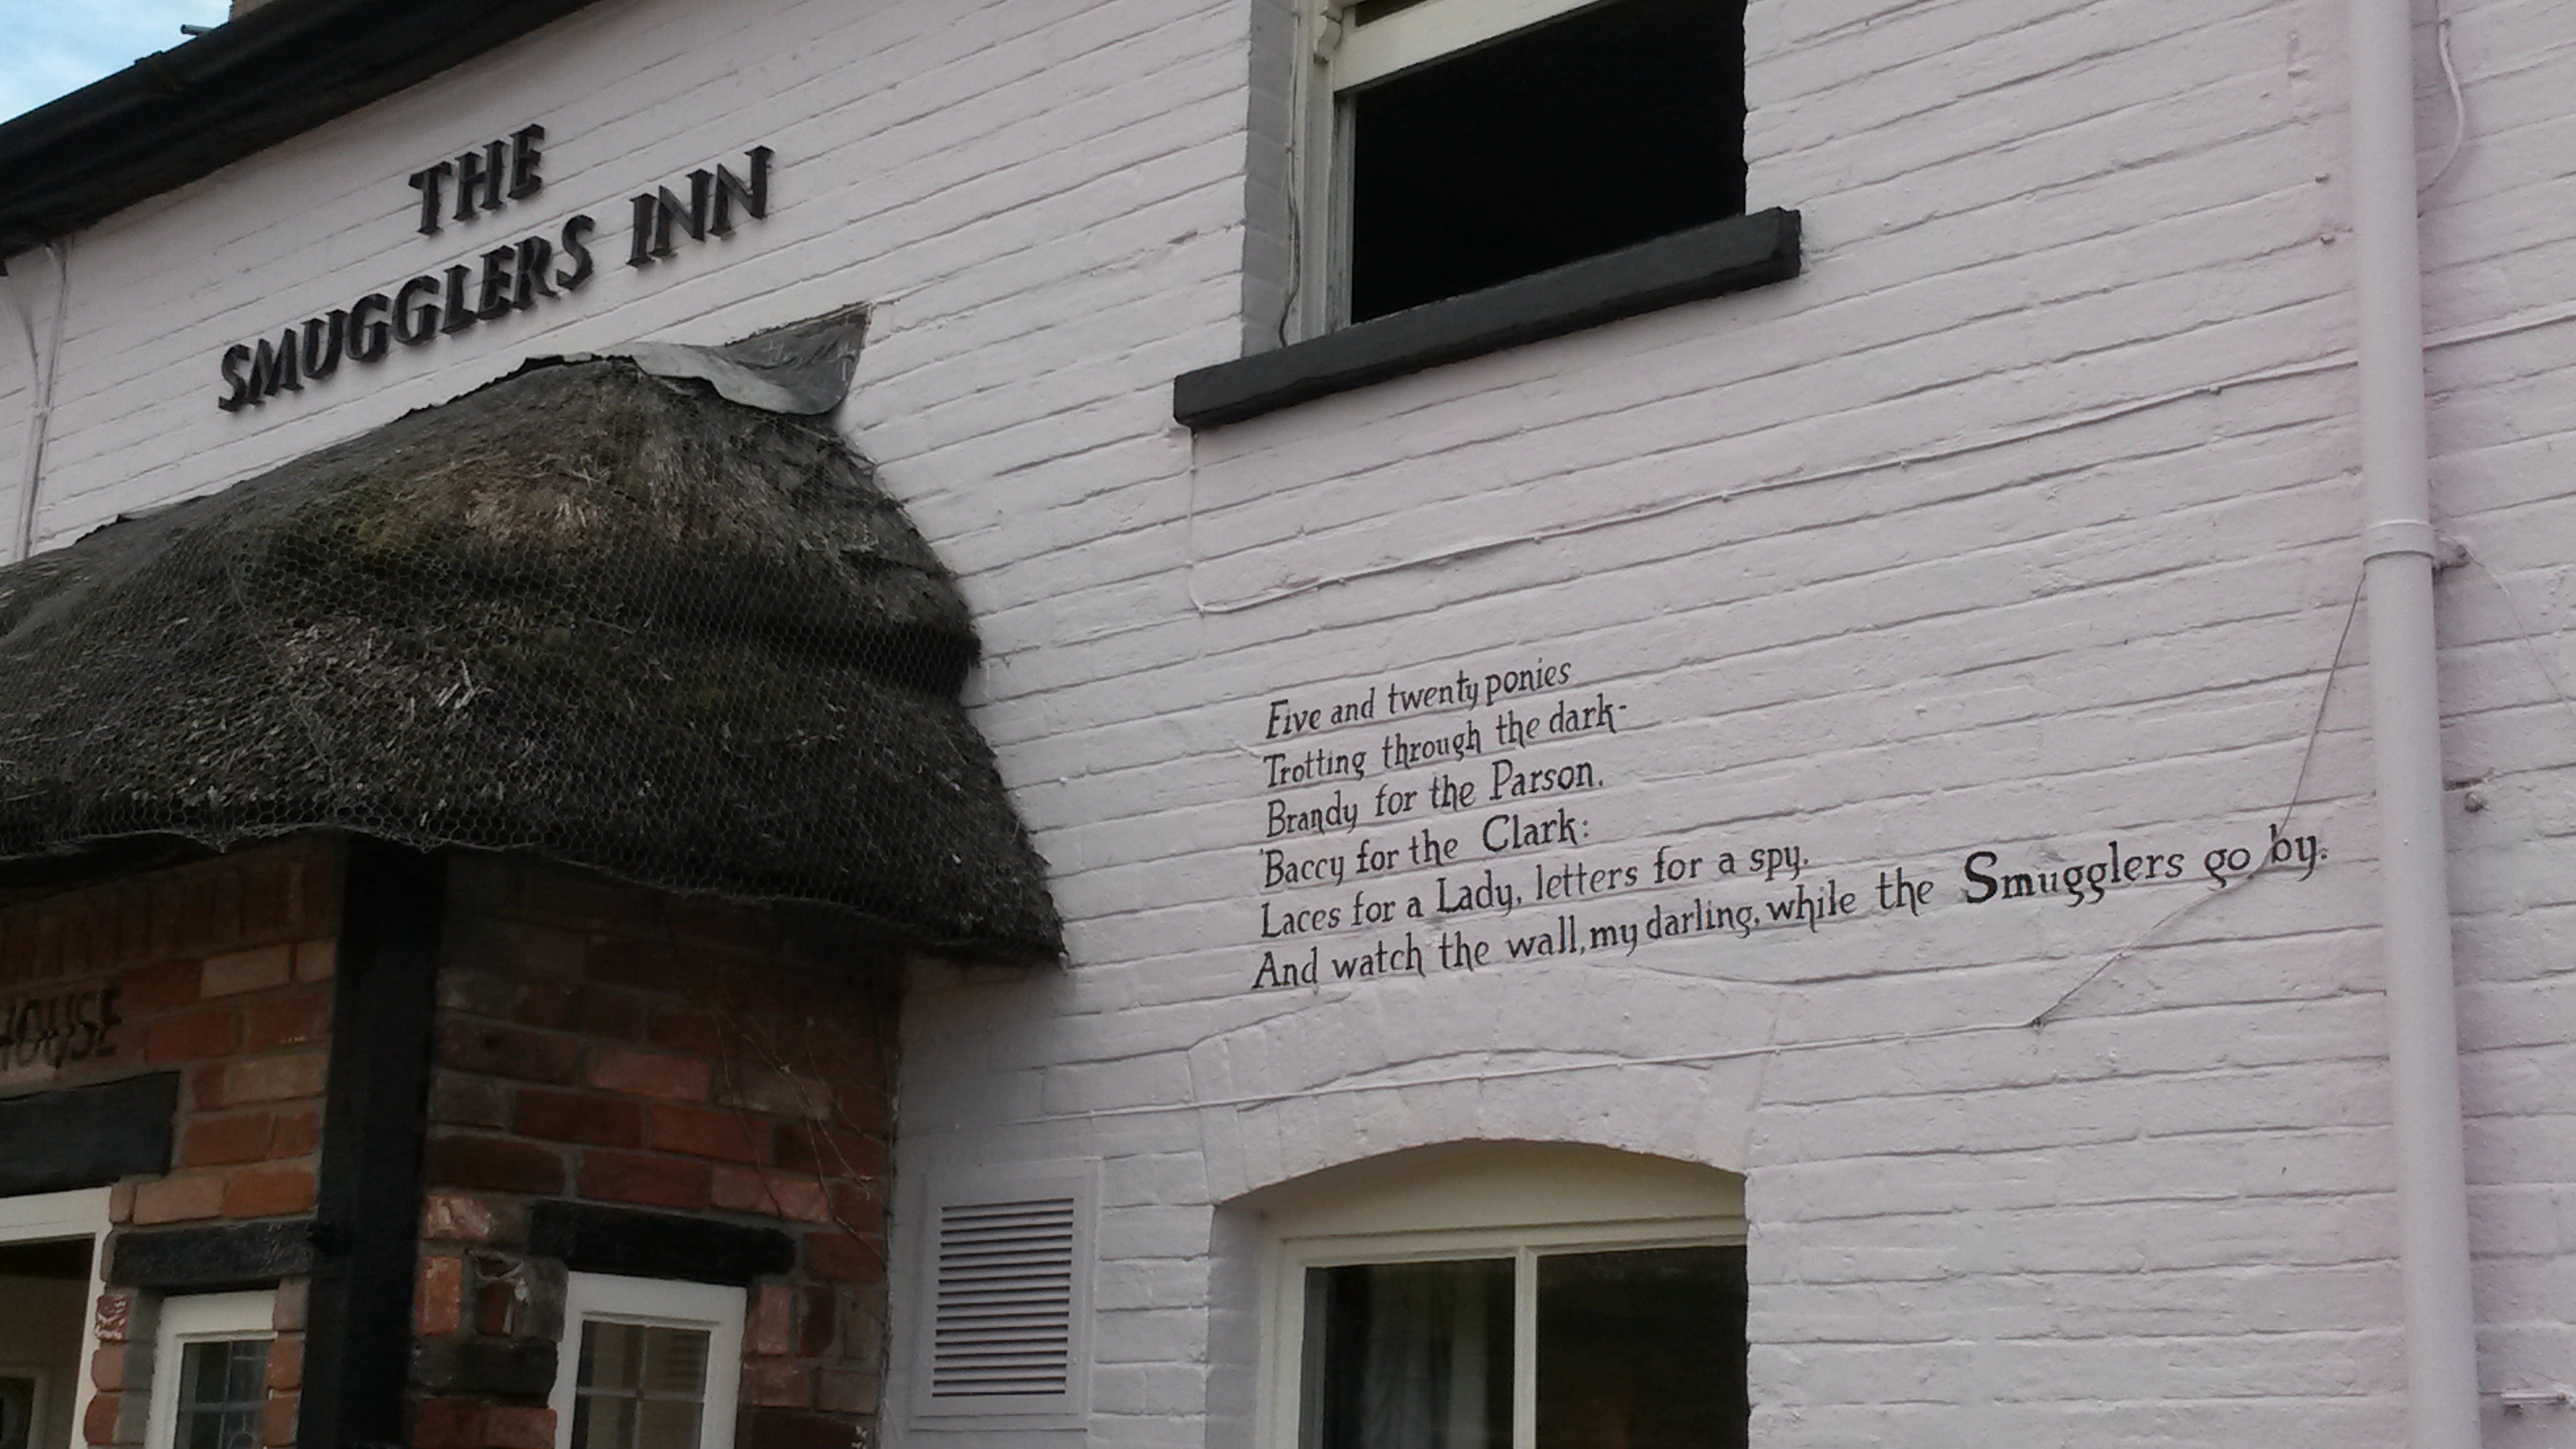 THE
SMUGGLERS INN
HOUSE
Five and twenty ponies
Trotting through the dark-
Brandy for the Parson.
'Baccy for the Clark:
Laces for a Lady, letters for a spy.
And watch the wall, my darling, while the Smugglers go by.